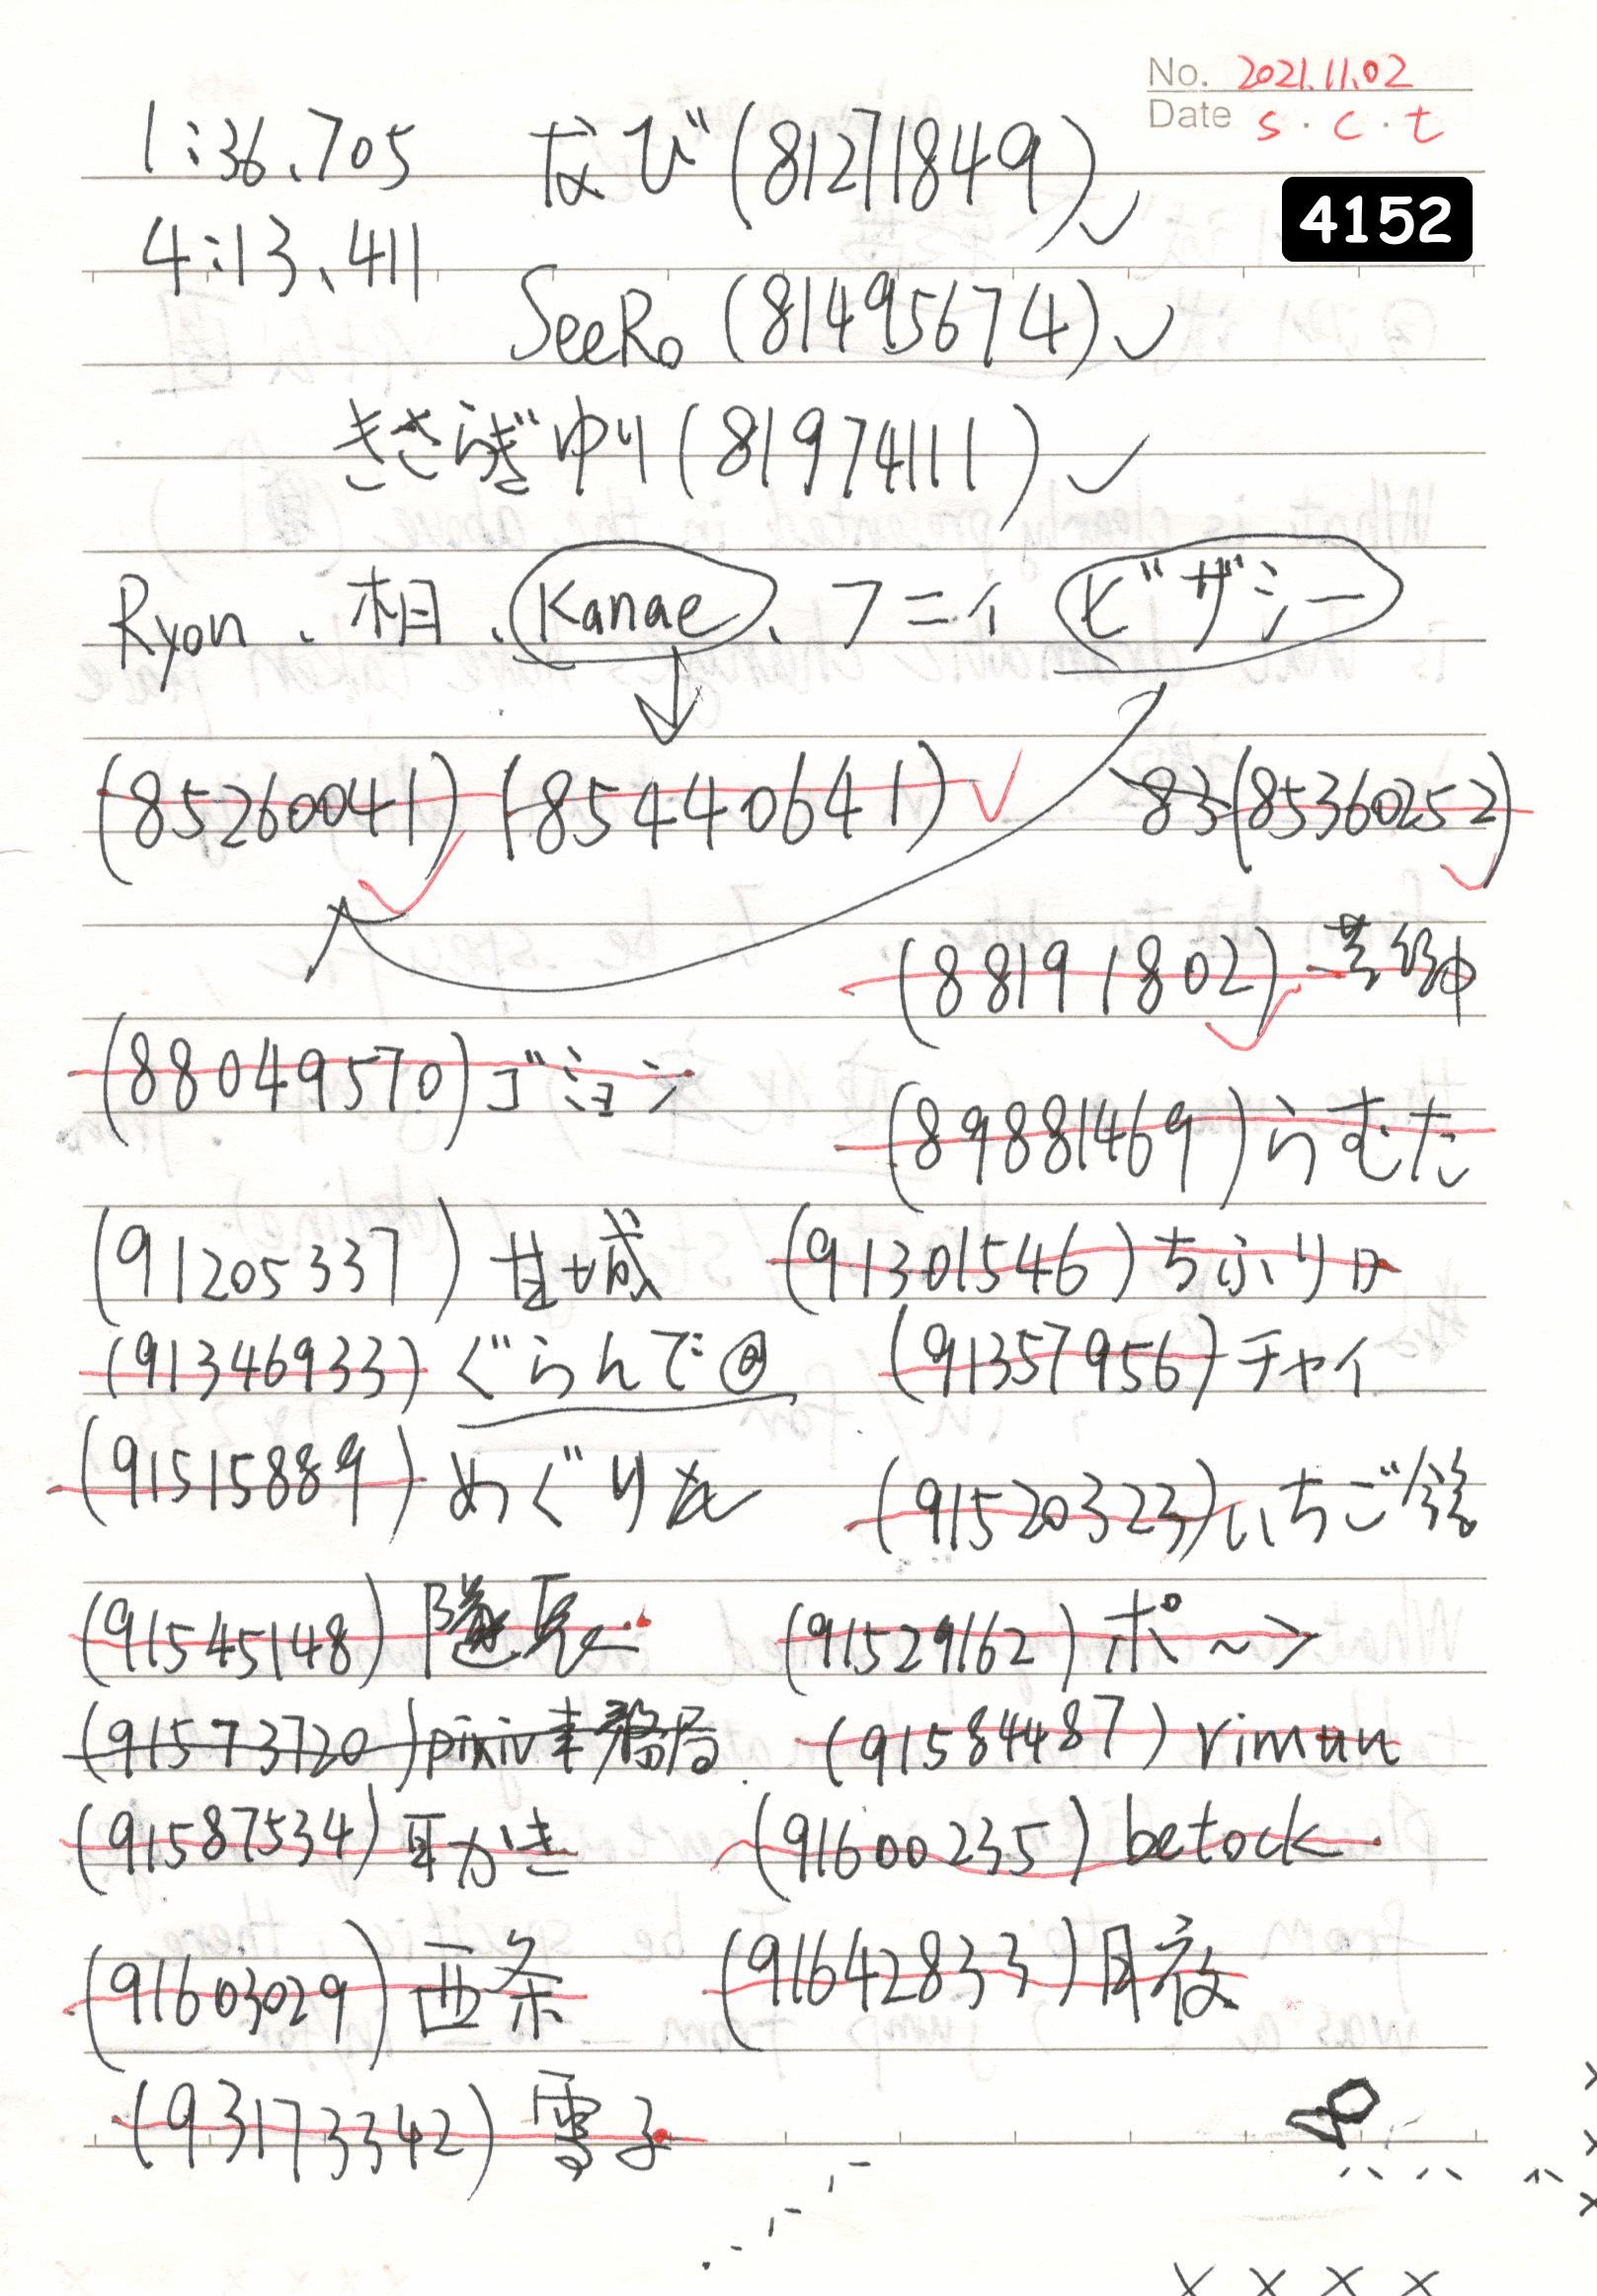 No. 2021.11.02
Date s.c.t
4152
1:36.705 なび(81271849)
4:13.411
SeeRo (81495674)
きさらぎゆり(81974111)
Ryon、相、Kanae、フニィ ビザシー
(85260041) (85440641) 83(85360252)
(88191802)
(88049570)ゴジョン
(89881469)らむた
(91205337) 甘城 (91301546)ちふりロ
(91346933) ぐらんで@ (91357956)チャイ
(91515889) めぐりね (91520323)いちご飴
(91545148) (91529162)ポ~ン
(91573720)pixiv事務局 (91584487) rimuu
(91587534)耳かき (91600235) betock
(91603029) 西条 (91642833)月夜
(93173342) 雪子
x x x x